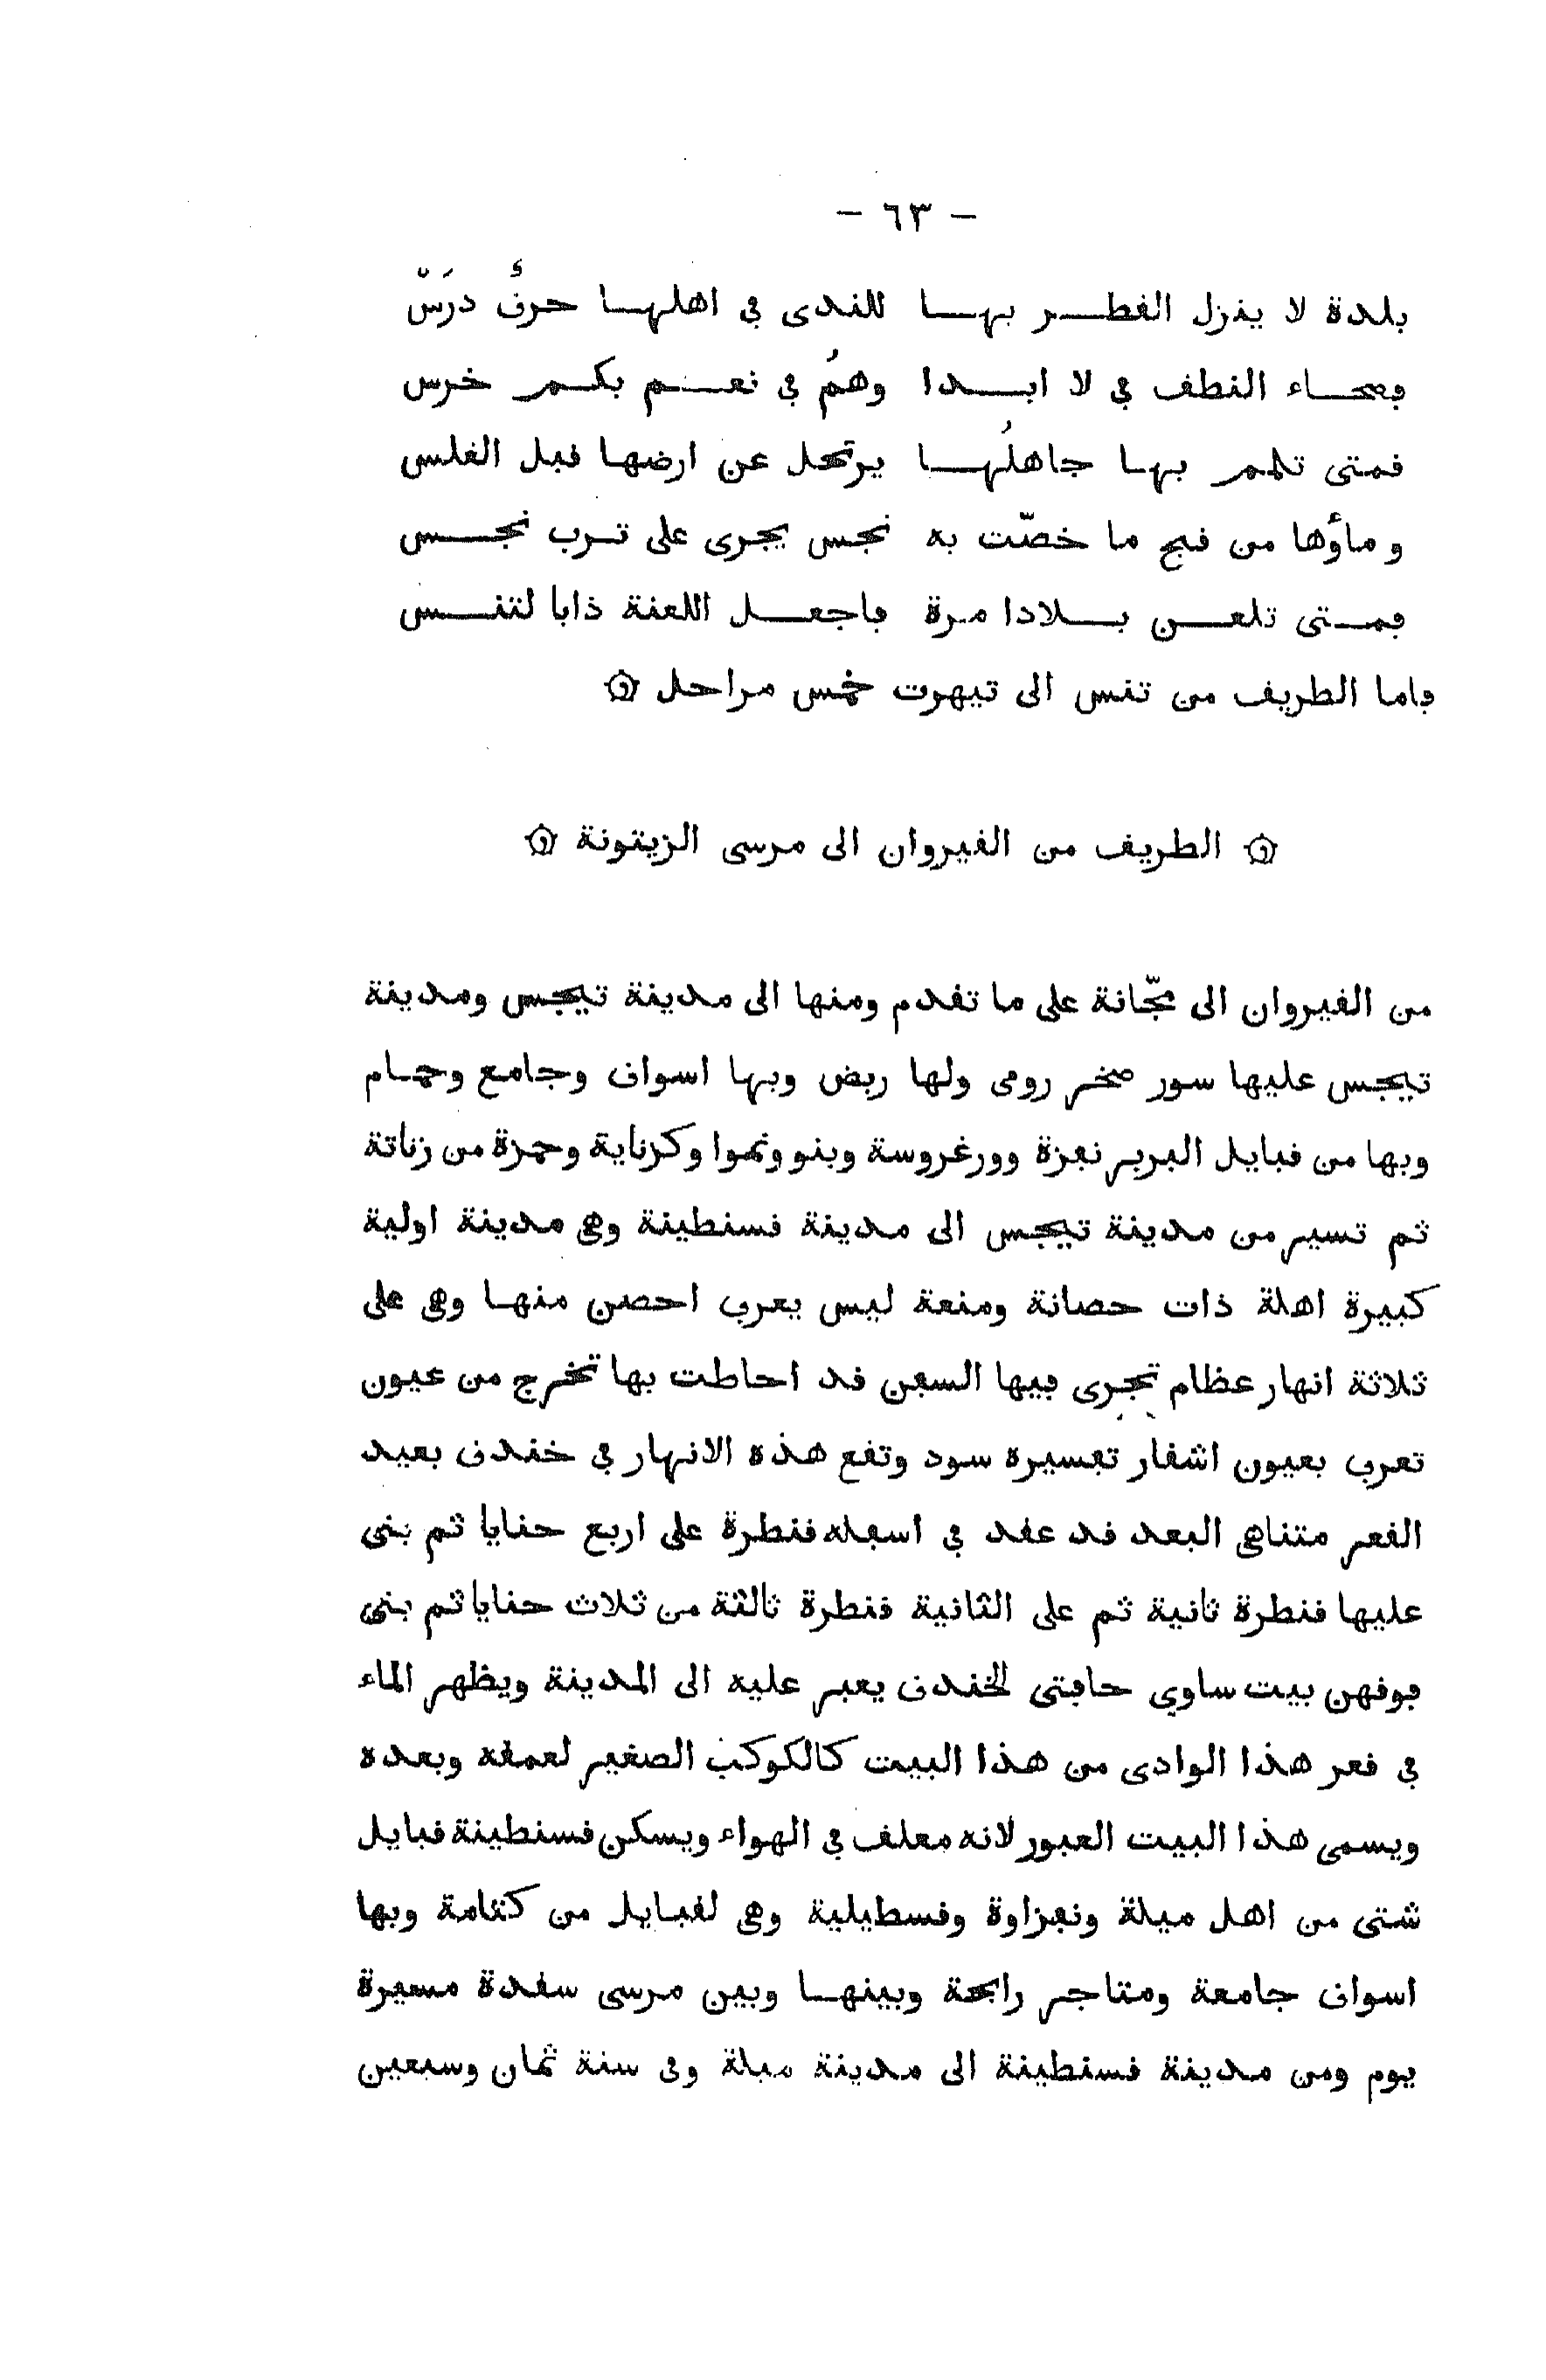 - ٦٣ -
بلدة لا ينزل القطر بها للندى في اهلها حرفٌ درَسْ
فصحاء النطق في لا ابدا وهمُ في نعم بكم خرس
فمتى تلمم بها جاهلُها يرتحل عن ارضها قبل الغلس
وماؤها من قبح ما خصّت به نجس يجرى على ترب نجس
فمتى تلعن بلادا مرة فاجعل اللعنة دابا لتنس
فاما الطريق من تنس الى تيهرت خمس مراحل ۞
۞ الطريق من القيروان الى مرسى الزيتونة ۞
من القيروان الى مجّانة على ما تقدم ومنها الى مدينة تيجس ومدينة
تيجس عليها سور صخر رومى ولها ربض وبها اسواق وجامع وحمام
وبها من قبايل البربر نفزة وورغروسة وبنو ونموا وكزناية وحمزة من زناتة
ثم تسير من مدينة تيجس الى مدينة قسنطينة وهى مدينة اولية
كبيرة اهلة ذات حصانة ومنعة ليس يعرف احصن منها وهى على
ثلاثة انهار عظام تجرى فيها السفن قد احاطت بها تخرج من عيون
تعرف بعيون اشقار تفسيره سود وتقع هذه الانهار في خندق بعيد
القعر متناهى البعد قد عقد في اسفله قنطرة على اربع حنايا ثم بنى
عليها قنطرة ثانية ثم على الثانية قنطرة ثالثة من ثلاث حنايا ثم بنى
فوقهن بيت ساوى حافتى الخندق يعبر عليه الى المدينة ويظهر الماء
في قعر هذا الوادى من هذا البيت كالكوكب الصغير لعمقه وبعده
ويسمى هذا البيت العبور لانه معلق في الهواء ويسكن قسنطينة قبايل
شتى من اهل ميلة ونفزاوة وقسطيلية وهى لقبايل من كتامة وبها
اسواق جامعة ومتاجر رابحة وبينها وبين مرسى سقدة مسيرة
يوم ومن مدينة قسنطينة الى مدينة ميلة وفى سنة ثمان وسبعين